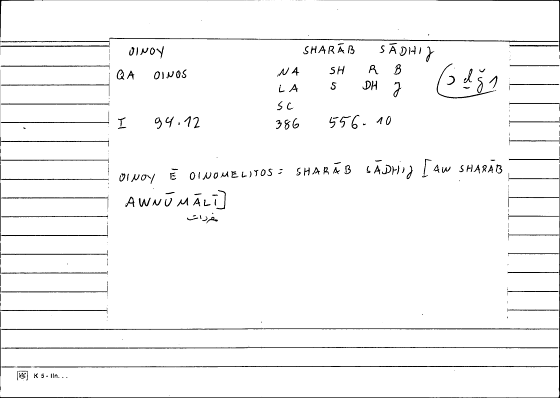 OINOY SHARĀB SĀDHIJ
QA OINOS NA SH R B
LA S DH J
SC
I 94.12 386 556.10
OINOY Ē OINOMELITOS = SHARĀB SĀDHIJ [AW SHARĀB
AWNŪMĀLĪ]
مفردات
K S - IIn. . .